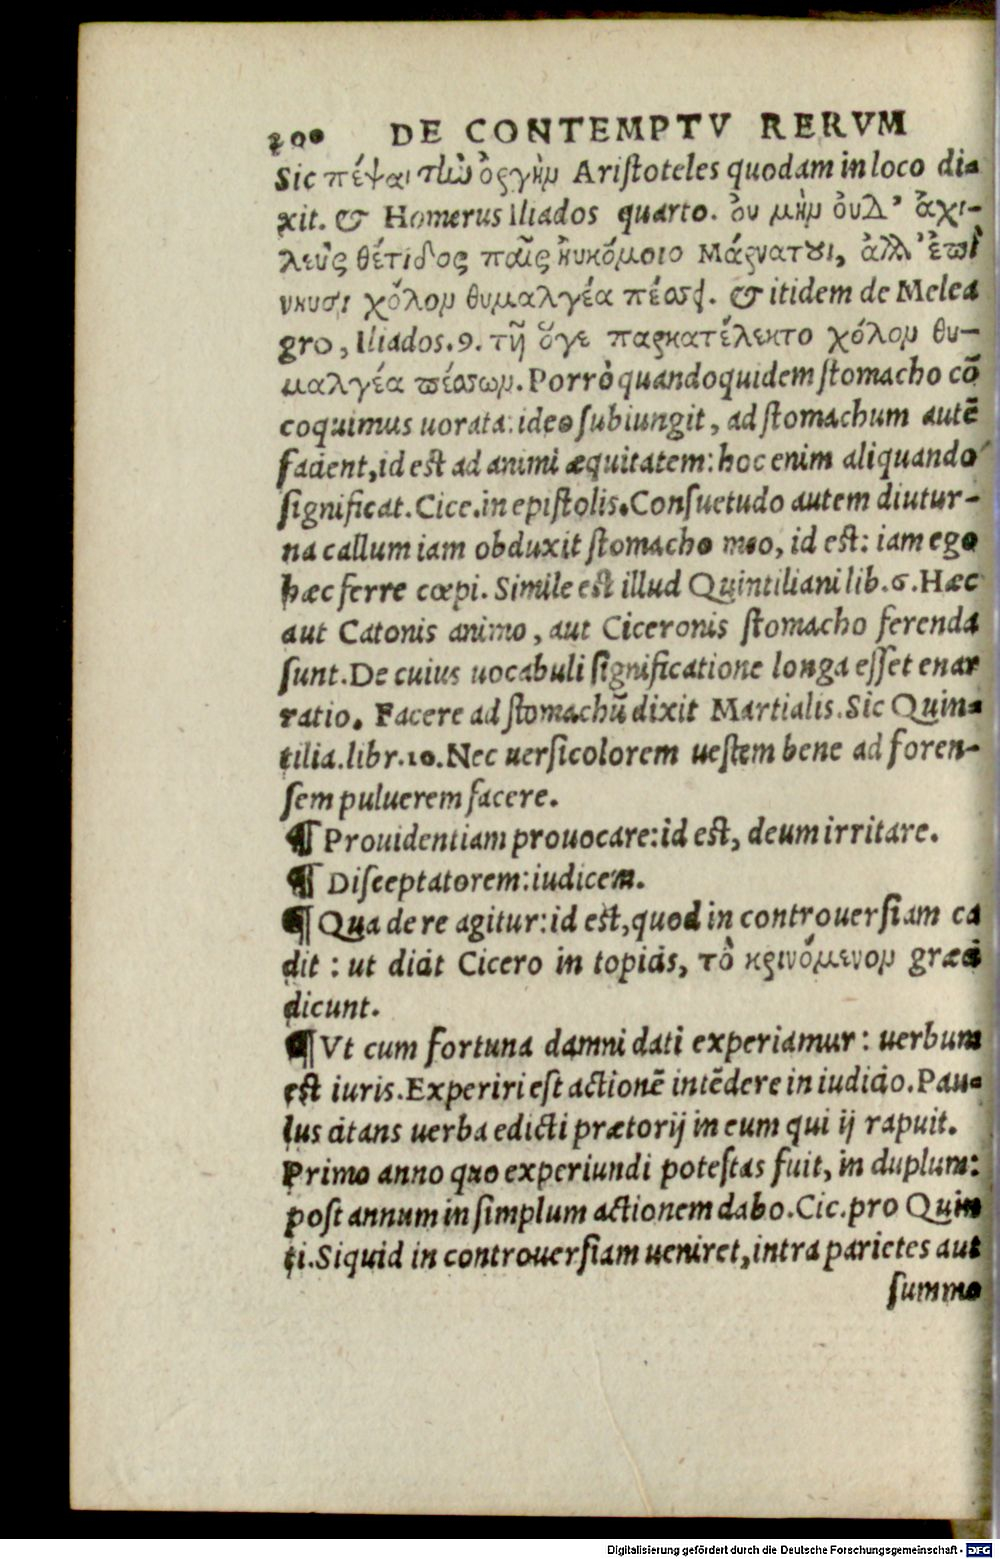 200 DE CONTEMPTV RERVM
Sic πέψαι τἰὼ ὀργὴν Aristoteles quodam in loco di-
xit. & Homerus Iliados quarto. ὀυ μὴν ὀυδ' ἀχι-
λεὺς θέτιδος παῖς ἠυκόμοιο Μάρναται, ἀλλ' ἐπὶ
νηυσι χόλον θυμαλγέα πέσσει. & itidem de Melea
gro, Iliados.9. τῇ ὅγε παρκατέλεκτο χόλον θυ-
μαλγέα πέσσων. Porrò quandoquidem stomacho cō
coquimus uorata: ideo subiungit, ad stomachum autē
facient, id est ad animi æquitatem: hoc enim aliquando
significat. Cice. in epistolis. Consuetudo autem diutur-
na callum iam obduxit stomacho meo, id est: iam ego
hæc ferre cœpi. Simile est illud Quintiliani lib.6. Hæc
aut Catonis animo, aut Ciceronis stomacho ferenda
sunt. De cuius uocabuli significatione longa esset enar
ratio. Facere ad stomachū dixit Martialis. Sic Quin-
tilia. libr.10. Nec uersicolorem uestem bene ad foren-
sem puluerem facere.
¶ Prouidentiam prouocare: id est, deum irritare.
¶ Disceptatorem: iudicem.
¶ Qua de re agitur: id est, quod in controuersiam ca
dit : ut dicit Cicero in topicis, τὸ κρινόμενον græci
dicunt.
¶ Vt cum fortuna damni dati experiamur : uerbum
est iuris. Experiri est actionē intēdere in iudicio. Pau-
lus citans uerba edicti prætorij in eum qui ij rapuit.
Primo anno quo experiundi potestas fuit, in duplum:
post annum in simplum actionem dabo. Cic. pro Quin
ti. Siquid in controuersiam ueniret, intra parietes aut
summo
Digitalisierung gefördert durch die Deutsche Forschungsgemeinschaft - DFG